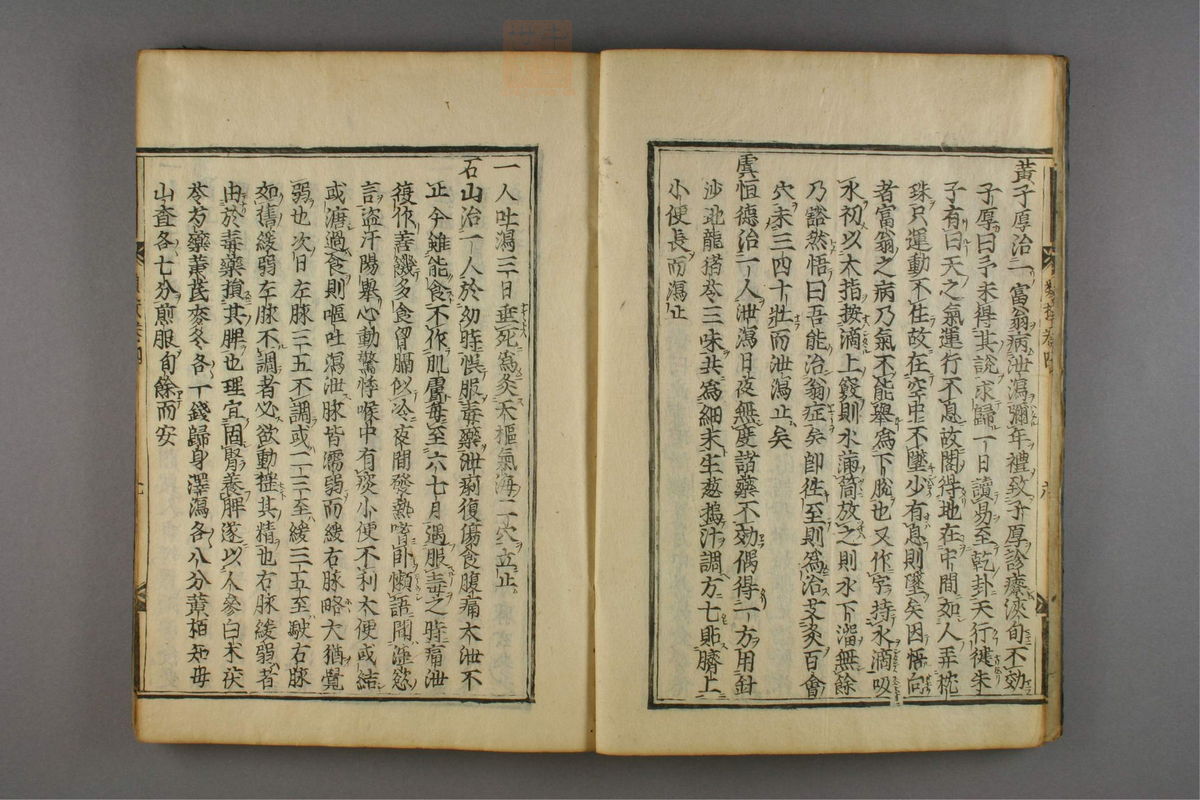 黃子厚治一富翁病泄瀉彌年禮致子厚診療浹旬不効
子厚曰予未得其說求歸一日讀易至乾卦天行健朱
子有曰天之氣運行不息故閣得地在中間如人弄椀
珠只運動不住故在空中不墜少有息則墜矣因悟向
者富翁之病乃氣不能舉為下脫也又作字持水滴吸
水初以大指按滴上竅則水滿筒放之則水下溜無餘
乃豁然悟曰吾能治翁症矣卽往至則為治艾灸百會
穴未三四十壯而泄瀉止矣
虞恒德治一人泄瀉日夜無度諸藥不効偶得一方用針
沙地龍猪苓三味共為細末生葱搗汁調方七貼臍上
小便長而瀉止
一人吐瀉三日垂死為灸天樞氣海二穴立止
石山治一人於幼時悞服毒藥泄痢復傷食腹痛大泄不
止今雖能食不作肌膚每至六七月遇服毒之時痛泄
復作善饑多食胃膈似冷夜間發熱嗜卧懶語聞淫慾
言盜汗陽舉心動驚悸喉中有痰小便不利大便或結
或溏過食則嘔吐瀉泄脉皆濡弱而緩右脉略大猶覺
弱也次日左脉三五不調或二三至緩三五至駃右脉
如舊緩弱左脉不調者必欲動搖其精也右脉緩弱者
由於毒藥損其脾也理宜固腎養脾遂以人參白朮茯
苓芍藥黃芪麥冬各一錢歸身澤瀉各八分黃栢知母
山査各七分煎服旬餘而安